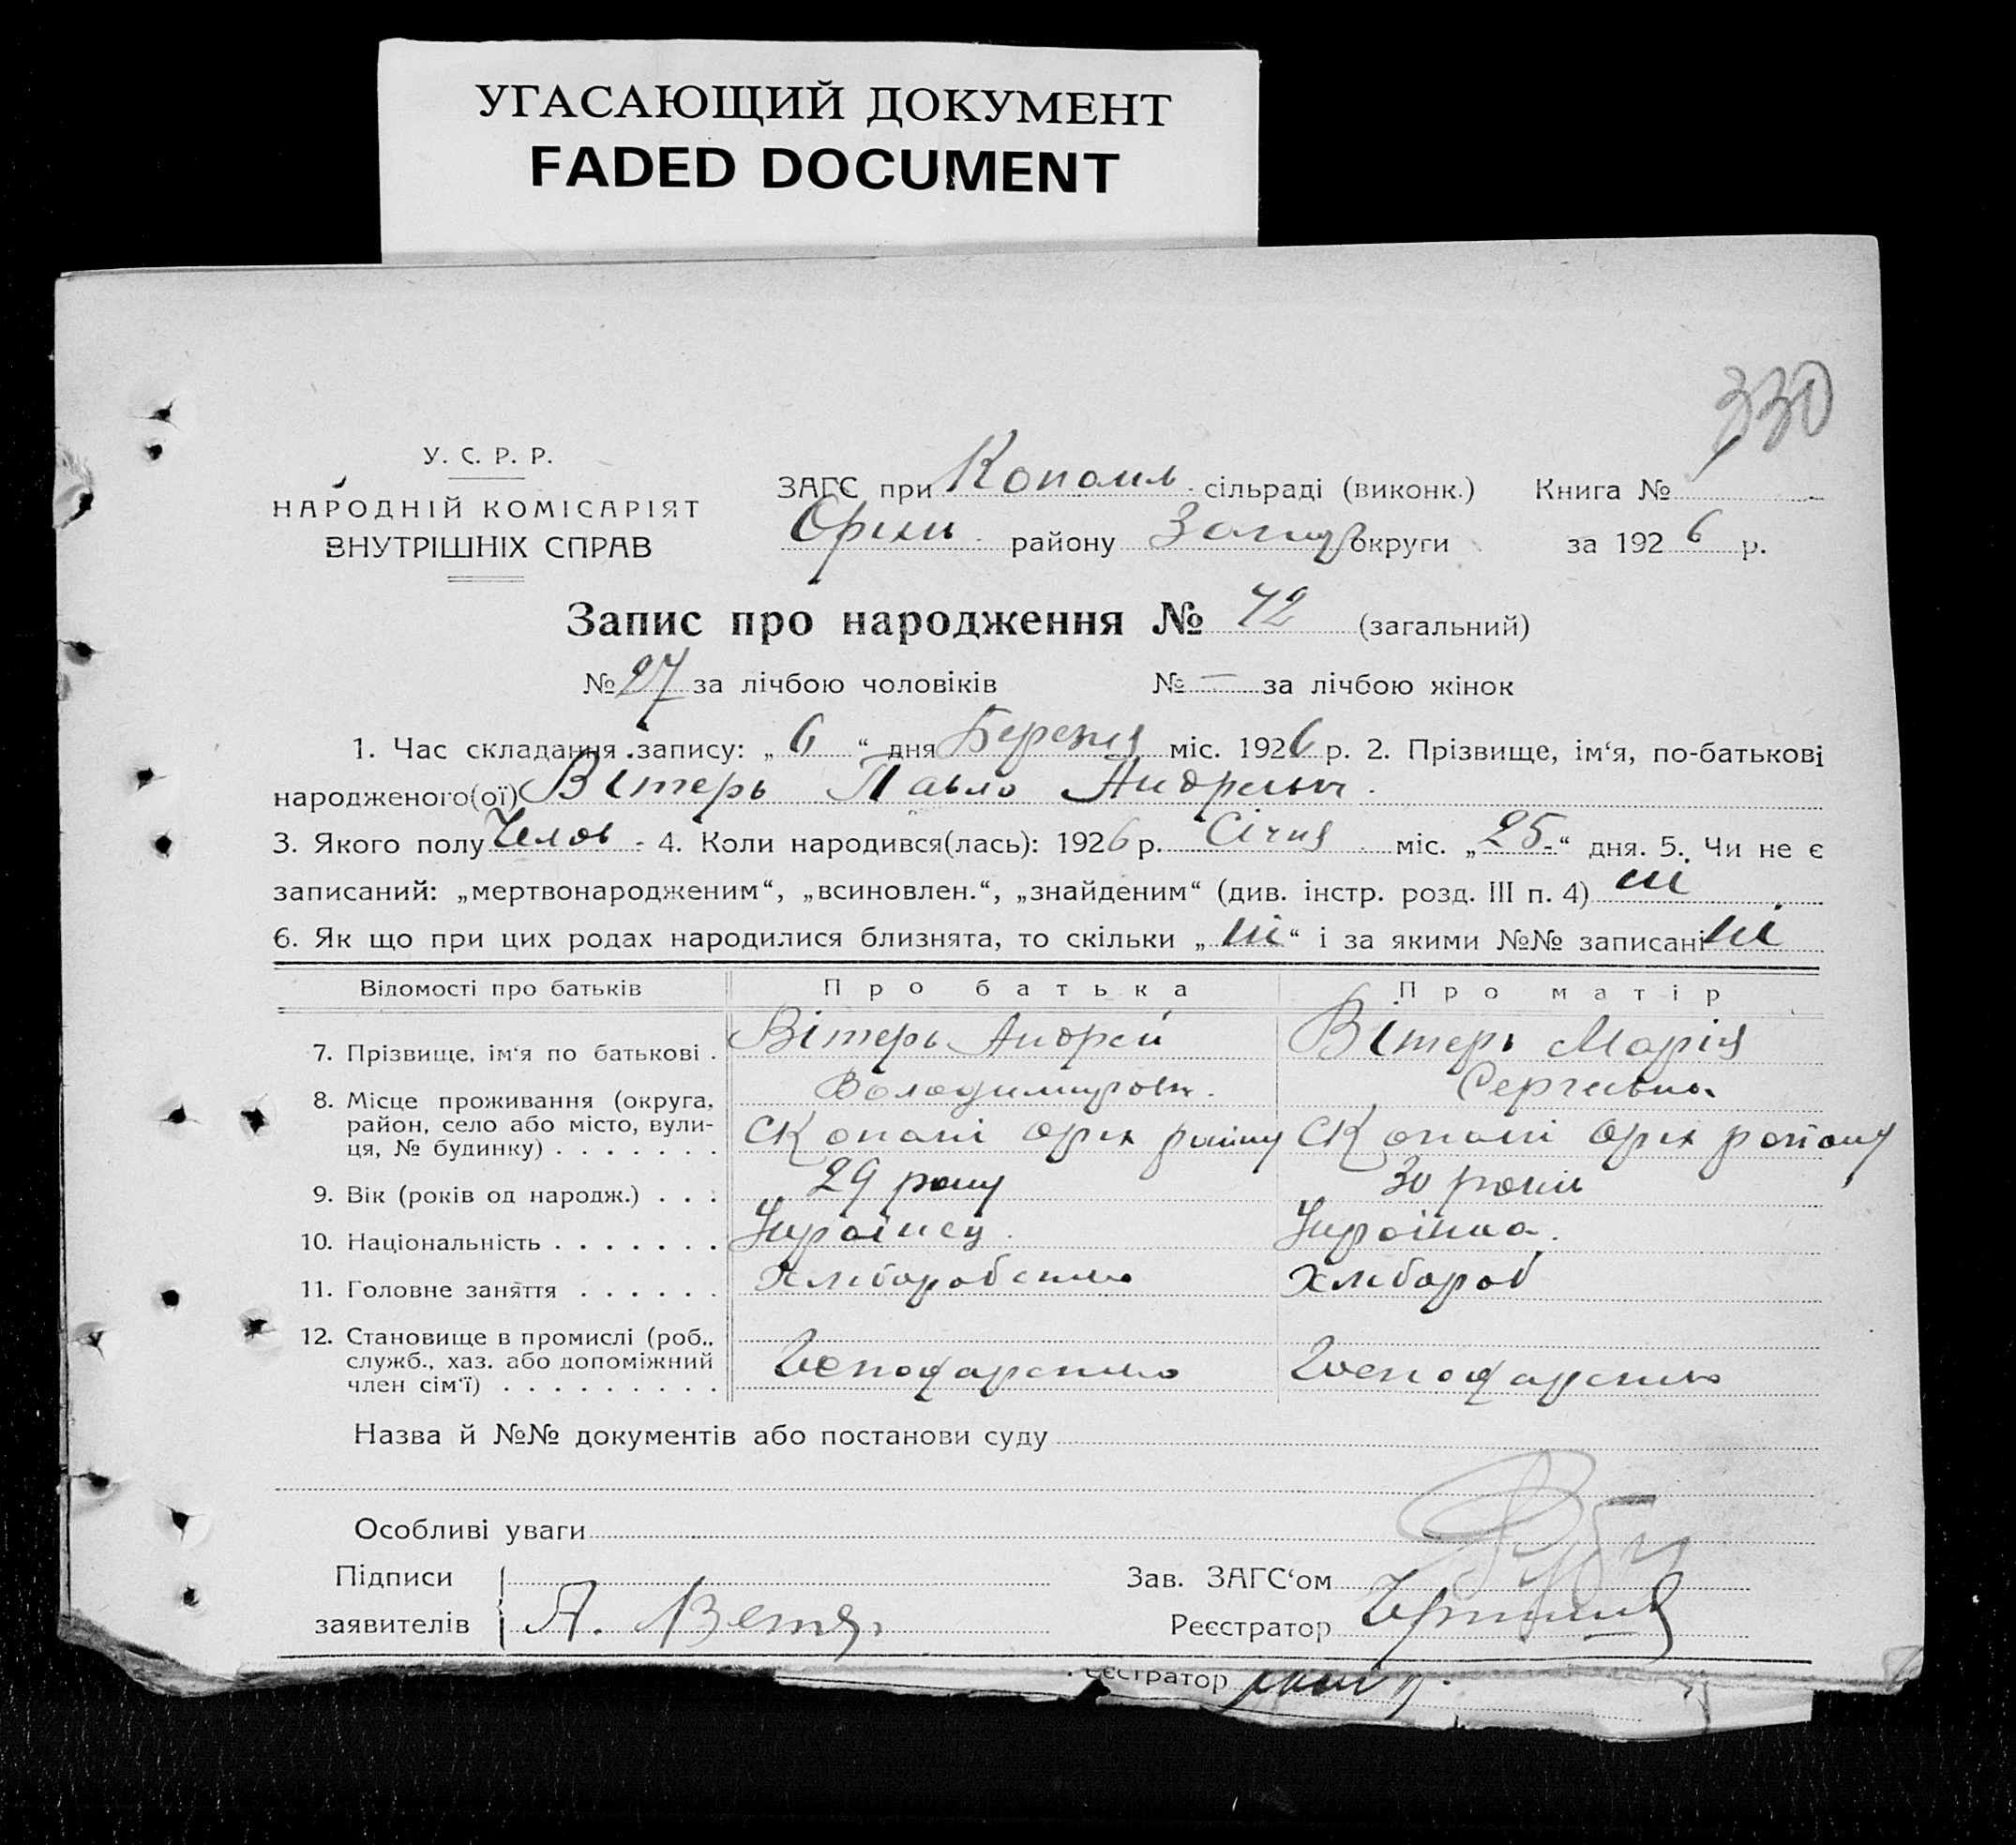 УГАСАЮЩИЙ ДОКУМЕНТ
FADED DOCUMENT
330
У. С. Р. Р.
НАРОДНІЙ КОМІСАРІЯТ
ВНУТРІШНІХ СПРАВ
ЗАГС при Копанів. сільраді (виконк.) Книга №
Оріхів. району Запор округи за 1926 р.
Запис про народження № 42 (загальний)
№ 27 за лічбою чоловіків № — за лічбою жінок
1. Час складання запису: „6“ дня Березня міс. 1926 р. 2. Прізвище, ім‘я, по-батькові
народженого(ої) Вітерь Павло Андреевич.
3. Якого полу Челов. 4. Коли народився(лась): 1926 р. Січня міс. „25“ дня. 5. Чи не є
записаний: „мертвонародженим“, „всиновлен.“, „знайденим“ (див. інстр. розд. III п. 4) ні
6. Як що при цих родах народилися близнята, то скільки „ні“ і за якими №№ записані ні
Відомості про батьків Про батька Про матір
7. Прізвище, ім‘я по батькові . Вітерь Андрей Володимирович. Вітерь Марія Сергиевна.
8. Місце проживання (округа, район, село або місто, вулиця, № будинку) . . . . . . . С Копані Оріх району С Копані Оріх району
9. Вік (років од народж.) . . . 29 року 30 років
10. Національність . . . . . . . Украінец. Украінка.
11. Головне заняття . . . . . . Хлиборобство Хлибороб
12. Становище в промислі (роб., служб., хаз. або допоміжний член сім‘ї) . . . . . . . . . Господарство Господарство
Назва й №№ документів або постанови суду
Особливі уваги
Підписи Зав. ЗАГС‘ом
заявителів А. Ветер Реєстратор
еєстратор